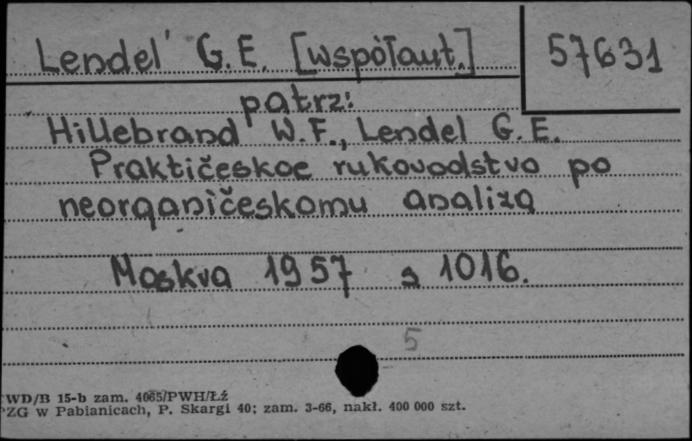 Lendel' G.E. [współaut.] 57631
patrz:
Hillebrand W.F., Lendel G.E.
Praktičeskoe rukovodstvo po
neorganičeskomu analiza
Moskva 1957 s 1016.
5
WD/B 15-b zam. 4065/PWH/Łź
PZG w Pabianicach, P. Skargi 40; zam. 3-66, nakł. 400 000 szt.